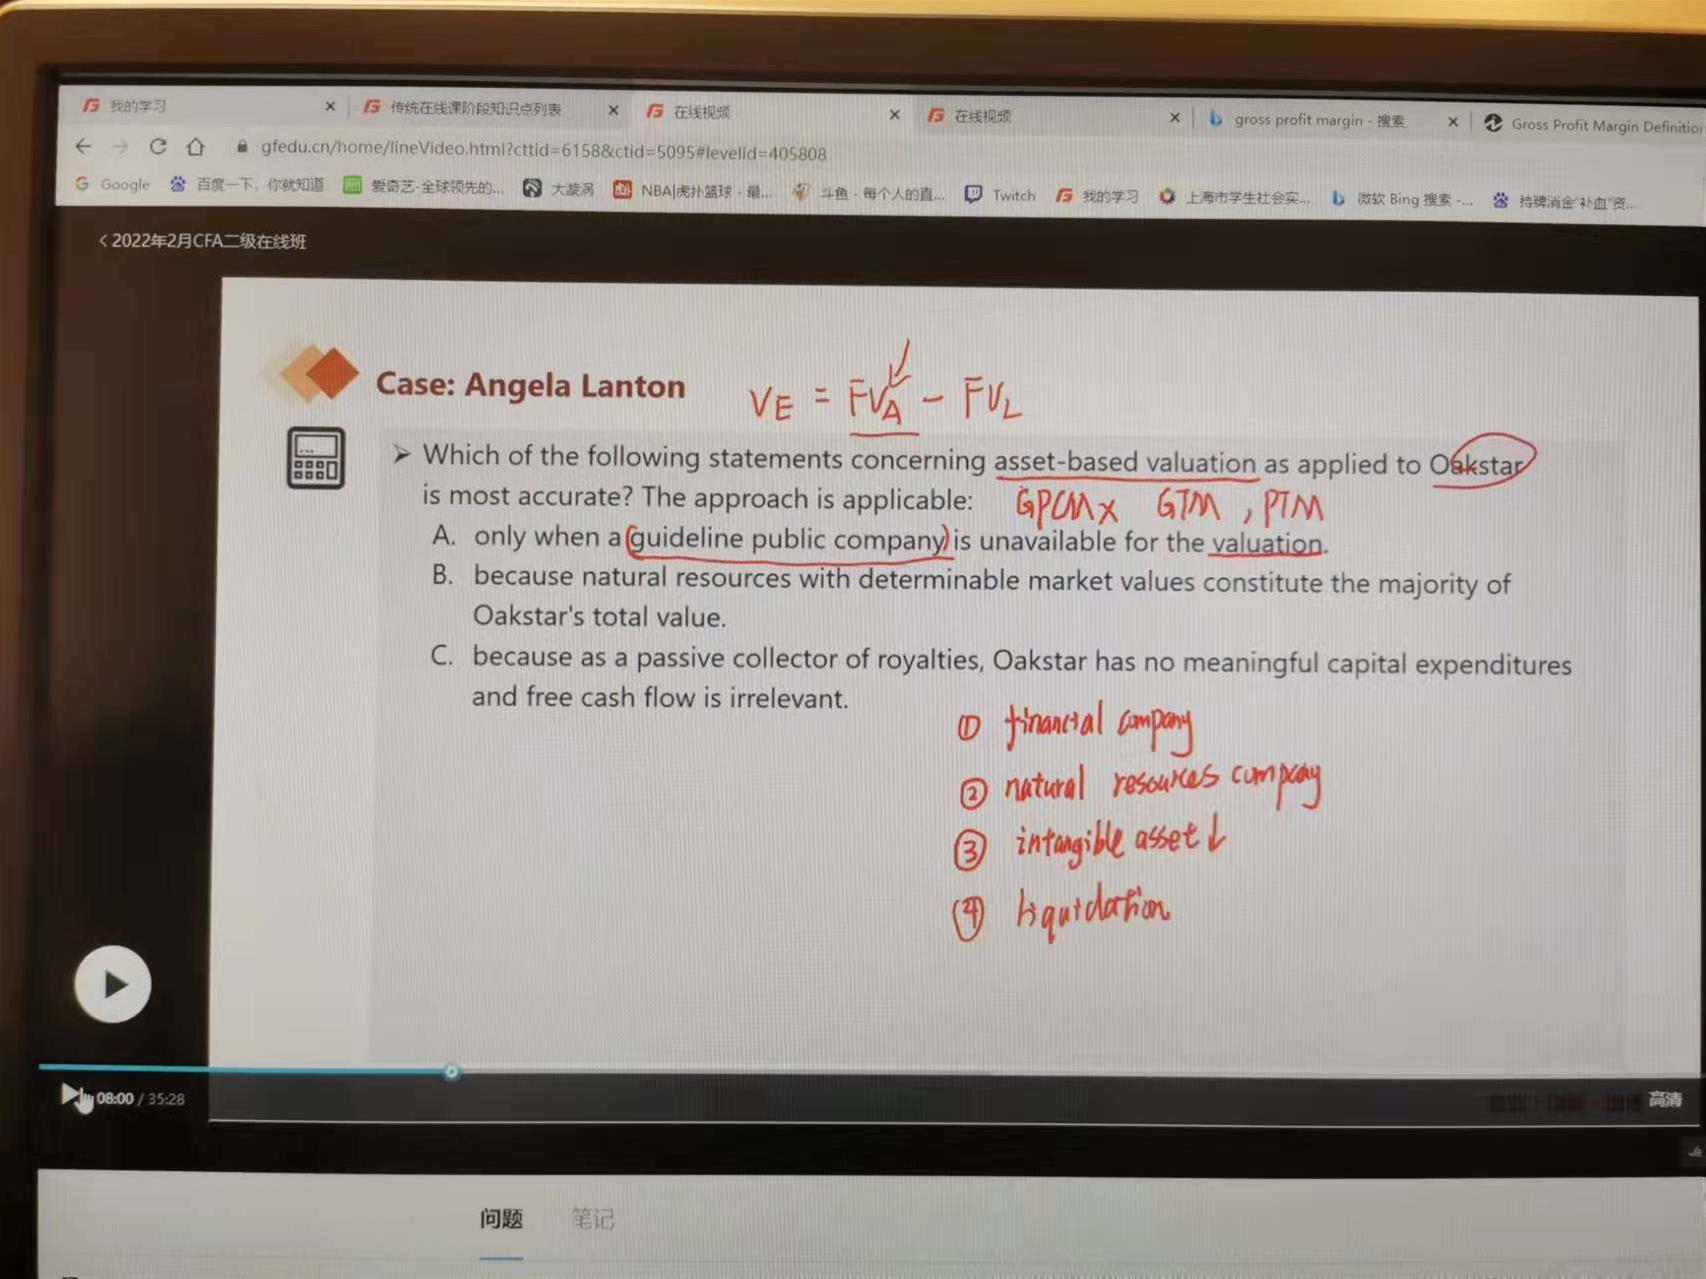 我的学习 × 传统在线课阶段知识点列表 × 在线视频 × 在线视频 × gross profit margin - 搜索 × Gross Profit Margin Definitio
gfedu.cn/home/lineVideo.html?cttid=6158&ctid=5095#levelid=405808
Google 百度一下，你就知道 爱奇艺-全球领先的... 大漩涡 NBA|虎扑篮球 - 最... 斗鱼 - 每个人的直... Twitch 我的学习 上海市学生社会实... 微软 Bing 搜索 -... 持牌消金“补血”资...
< 2022年2月CFA二级在线班
Case: Angela Lanton
VE = FVA - FVL
➢ Which of the following statements concerning asset-based valuation as applied to Oakstar
is most accurate? The approach is applicable:
GPCM x GTM , PTM
A. only when a guideline public company is unavailable for the valuation.
B. because natural resources with determinable market values constitute the majority of
Oakstar's total value.
C. because as a passive collector of royalties, Oakstar has no meaningful capital expenditures
and free cash flow is irrelevant.
① financial company
② natural resources company
③ intangible asset ↓
④ liquidation
08:00 / 35:28
高清
问题 笔记